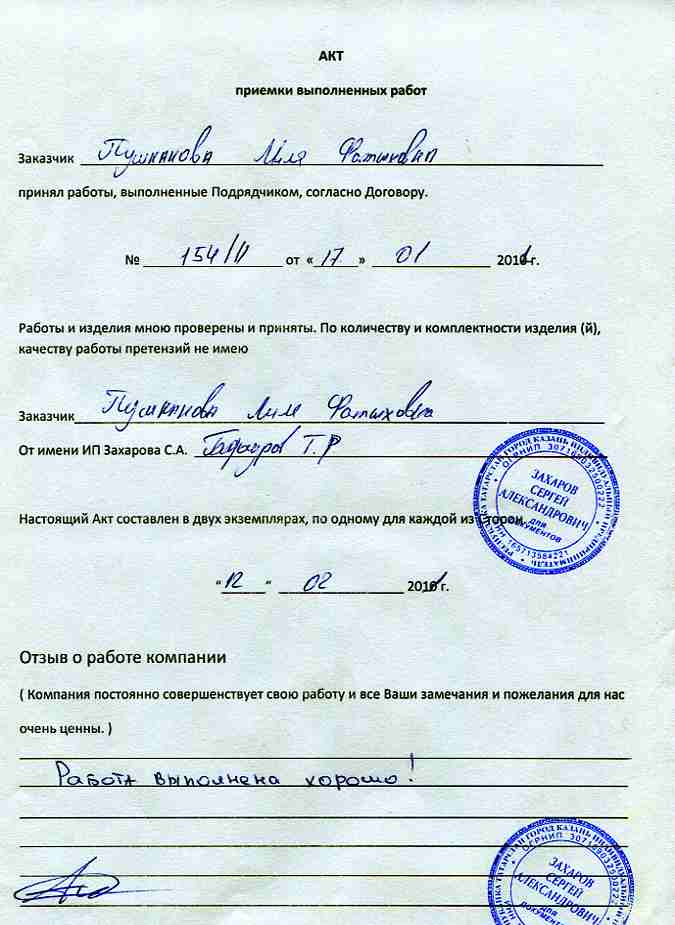 АКТ
приемки выполненных работ
Заказчик Пушканова Лиля Фатыховна
принял работы, выполненные Подрядчиком, согласно Договору.
№ 154/11 от «17» 01 2011 г.
Работы и изделия мною проверены и приняты. По количеству и комплектности изделия (й),
качеству работы претензий не имею
Заказчик Пушканова Лиля Фатыховна
От имени ИП Захарова С.А. Т.Р
Настоящий Акт составлен в двух экземплярах, по одному для каждой из Сторон.
РЕСПУБЛИКА ТАТАРСТАН ГОРОД КАЗАНЬ ИНДИВИДУАЛЬНЫЙ ПРЕДПРИНИМАТЕЛЬ
ЗАХАРОВ
СЕРГЕЙ
АЛЕКСАНДРОВИЧ
ДЛЯ
ДОКУМЕНТОВ
"12" 02 2011 г.
Отзыв о работе компании
( Компания постоянно совершенствует свою работу и все Ваши замечания и пожелания для нас
очень ценны. )
Работа выполнена хорошо!
ТАТАРСТАН ГОРОД КАЗАНЬ ИНДИВИДУАЛЬНЫЙ
ЗАХАРОВ
СЕРГЕЙ
АЛЕКСАНДРОВИЧ
ДЛЯ